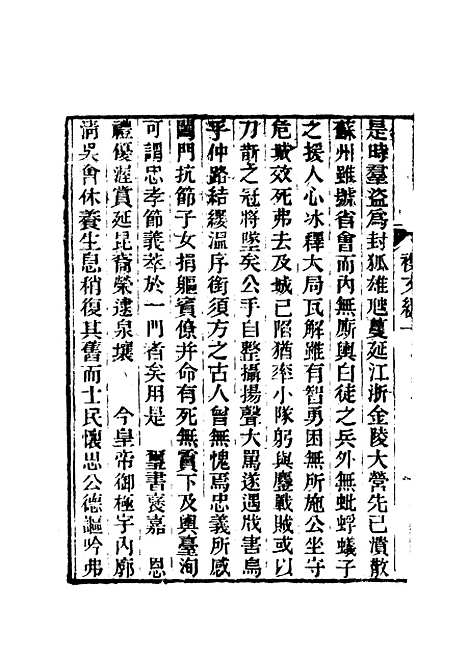 是時羣盜為封狐雄虺蔓延江浙金陵大營先已潰散
蘇州雖號省會而內無廝輿白徒之兵外無蚍蜉蟻子
之援人心冰釋大局瓦解雖有智勇困無所施公坐守
危城效死弗去及城已陷猶率小隊躬與鏖戰賊或以
刀斮之冠將墜矣公手自整攝揚聲大罵遂遇戕害烏
乎仲路結纓溫序銜須方之古人曾無愧焉忠義所感
闔門抗節子女捐軀賓僚并命有死無貳下及輿臺洵
可謂忠孝節義萃於一門者矣用是 璽書褒嘉 恩
禮優渥賞延昆裔榮逮泉壤 今皇帝御極宇內廓
清吳會休養生息稍復其舊而士民懷思公德謳吟弗